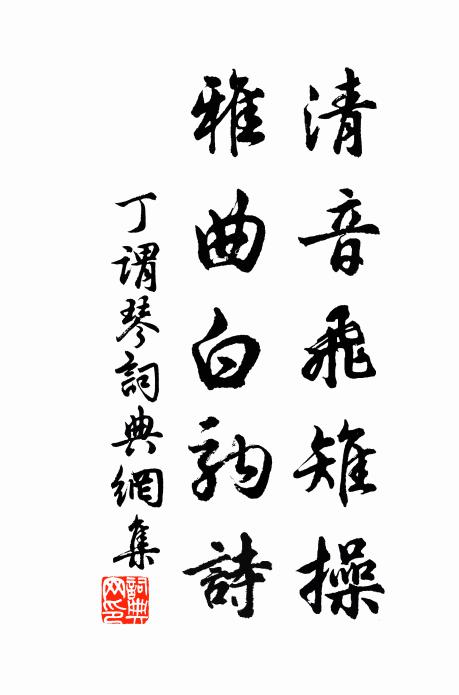 清音飛雉操
雅曲白駒詩
丁謂琴詞典網集
詞典网印